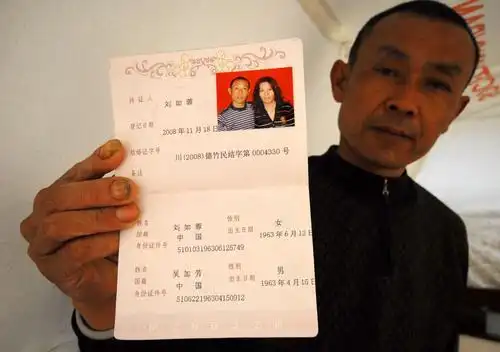 持证人 刘如蓉
登记日期 2008年11月18日
结婚证字号 川(2008)德竹民结字第0004330号
备注
姓名 刘如蓉 性别 女
国籍 中国 出生日期 1963年6月12日
身份证件号 510103196306125749
姓名 吴加芳 性别 男
国籍 中国 出生日期 1963年4月15日
身份证件号 510622196304150912